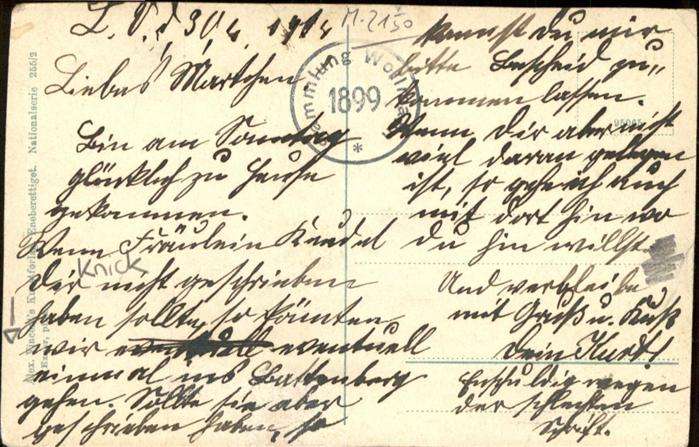 L. d. 30/4. 1914
Liebes Märtchen
Bin am Sonntag
glücklich zu Hause
angekommen.
Wenn Fräulein Kendel
dir nicht geschrieben
haben sollte, so könnten
wir eventuell
einmal ins Battenberg
gehen. Sollte sie aber
geschrieben haben, so
kannst du mir
bitte Bescheid zu„
kommen lassen.
Wenn dir aber nicht
viel daran gelegen
ist, so gehe ich auch
mit dort hin wo
du hin willst.
Und verbleibe
mit Gruß u. Kuß
dein Kurdt!
Entschuldig wegen
der schlechten
Schrift.
M-2150
Sammlung Wol
1899
*
Knick
Nationalserie 255/2